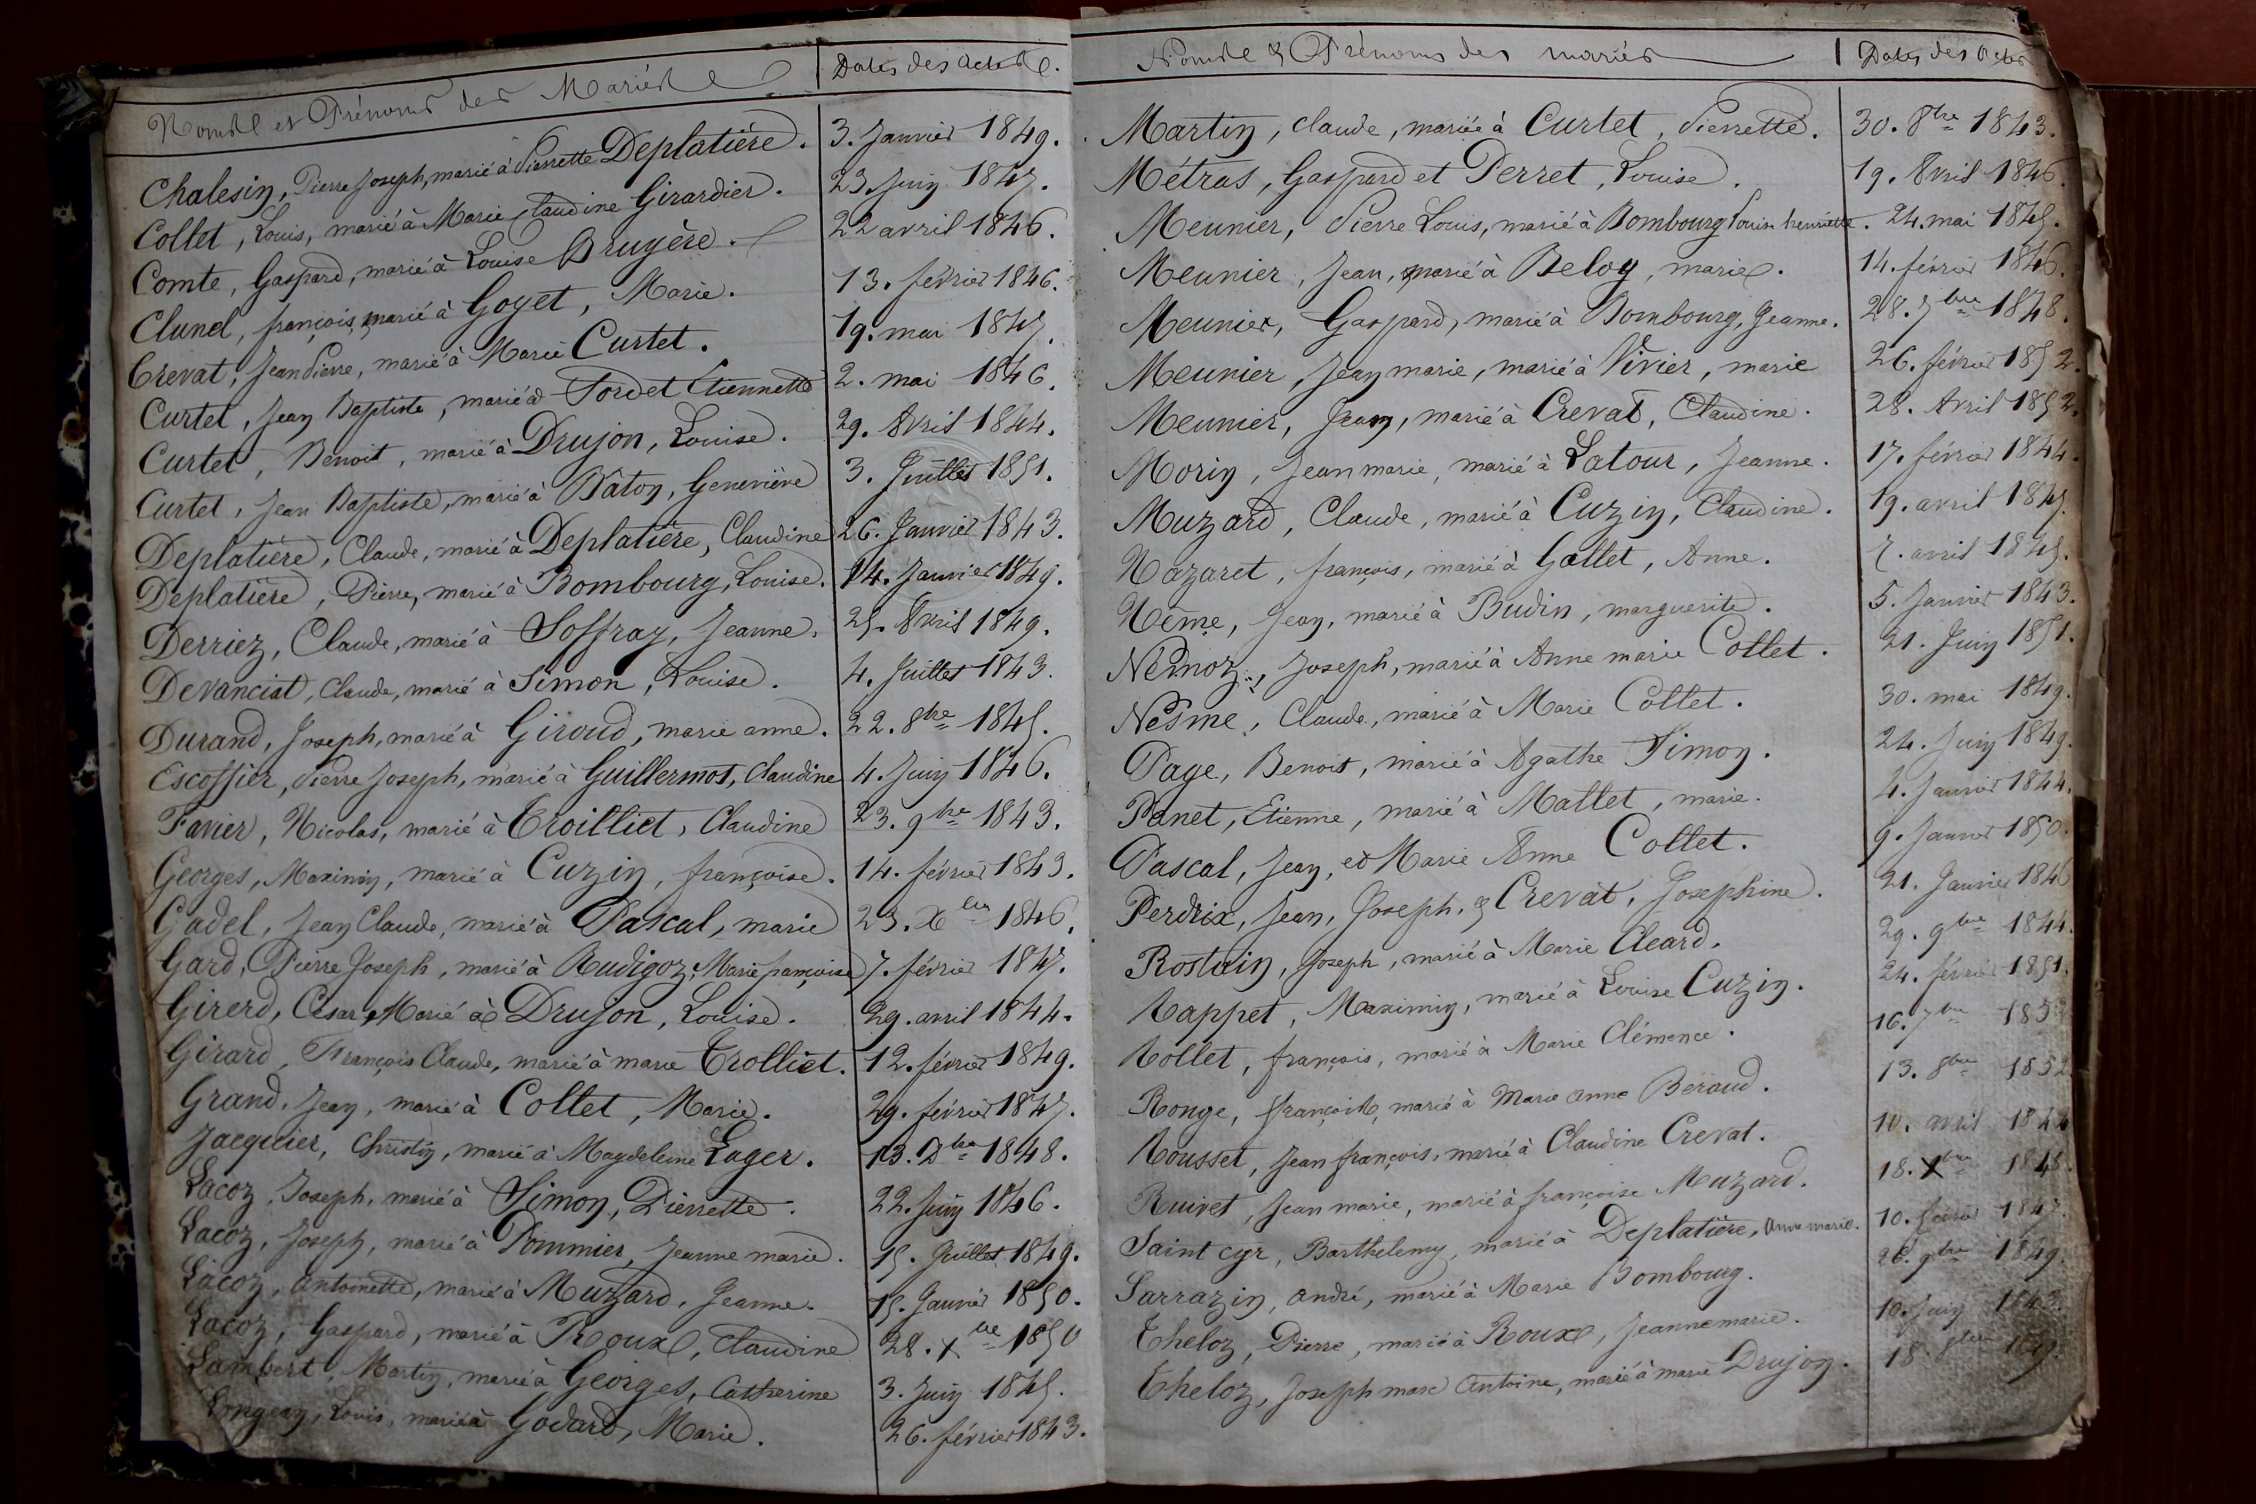 Noms et Prénoms des Mariés
Dates des Actes.
Chalesin, Pierre Joseph, marié à Pierrette Deplatière. 3. Janvier 1849.
Collet, Louis, marié à Marie Claudine Girardier. 23. Juin 1847.
Comte, Gaspard, marié à Louise Bruyère. 22 avril 1846.
Clunel, françois, marié à Goyet, Marie. 13. février 1846.
Crevat, Jean Pierre, marié à Marie Curtet. 19. mai 1847.
Curtet, Jean Baptiste, marié à Sordet Etiennette 2. mai 1846.
Curtet, Benoit, marié à Drujon, Louise. 29. Avril 1844.
Curtet, Jean Baptiste, marié à Baton, Geneviève 3. Juillet 1851.
Deplatière, Claude, marié à Deplatière, Claudine 26. Janvier 1843.
Deplatière, Pierre, marié à Bombourg, Louise. 14. Janvier 1849.
Derriez, Claude, marié à Soffray, Jeanne. 25. Avril 1849.
Devanciat, Claude, marié à Simon, Louise. 4. Juillet 1843.
Durand, Joseph, marié à Giroud, marie anne. 22. 8bre 1845.
Escoffier, Pierre Joseph, marié à Guillermot, Claudine 4. Juin 1846.
Favier, Nicolas, marié à Troilliet, Claudine 23. 9bre 1843.
Georges, Maximin, marié à Cuzin, françoise. 14. février 1843.
Gadel, Jean Claude, marié à Pascal, marie 23. Xbre 1846.
Gard, Pierre Joseph, marié à Rudigoz, Marie françoise 7. février 1847.
Girerd, César, Marié à Drujon, Louise. 29. avril 1844.
Girard, François Claude, marié à marie Trolliet. 12. février 1849.
Grand, Jean, marié à Collet, Marie. 29. février 1847.
Jacquier, Christin, marié à Magdeleine Lager. 13. Dbre 1848.
Lacoz, Joseph, marié à Simon, Pierrette. 22. Juin 1846.
Lacoz, Joseph, marié à Pommier, Jeanne marie. 15. Juillet 1849.
Lacoz, Antoinette, marié à Muzard, Jeanne. 15. Janvier 1850.
Lacoz, Gaspard, marié à Roux, Claudine 28. Xbre 1850
Lambert, Martin, marié à Georges, Catherine 3. Juin 1845.
Longeay, Louis, marié à Godard, Marie. 26. février 1843.
Noms & Prénoms des mariés
Dates des Actes
Martin, claude, mariée à Curtet, Pierrette. 30. 8bre 1843.
Métras, Gaspard et Perret, Louise. 19. Avril 1846.
Meunier, Pierre Louis, marié à Bombourg Louise henriette. 24. mai 1845.
Meunier, Jean, marié à Beloy, marie. 14. février 1846.
Meunier, Gaspard, marié à Bombourg, Jeanne. 28. 7bre 1848.
Meunier, Jean marie, marié à Vivier, marie 26. février 1852.
Meunier, Jean, marié à Crevat, Claudine. 28. Avril 1852.
Morin, Jean marie, marié à Latour, Jeanne. 17. février 1844.
Muzard, Claude, marié à Cuzin, Claudine. 19. avril 1845.
Nazaret, françois, marié à Gallet, Anne. 7. avril 1845.
Nême, Jean, marié à Budin, marguerite. 5. Janvier 1843.
Nernoz, Joseph, marié à Anne marie Collet. 21. Juin 1851.
Nesme, Claude, marié à Marie Collet. 30. mai 1849.
Page, Benoit, marié à Agathe Simon. 24. Juin 1849.
Panet, Etienne, marié à Mallet, marie. 4. Janvier 1844.
Pascal, Jean, et Marie Anne Collet. 9. Janvier 1850.
Perdrix, Jean, Joseph, & Crevat, Josephine. 21. Janvier 1846
Rostain, Joseph, marié à Marie Cleard. 29. 9bre 1844.
Rappet, Maximin, marié à Louise Cuzin. 24. février 1851.
Rollet, françois, marié à Marie Clémence. 16. 7bre
Ronge, françois, marié à Marie Anne Beraud. 13. 8bre 1852
Rousset, Jean françois, marié à Claudine Crevat. 10. avril 1844
Ruivet, Jean marie, marié à françoise Muzard. 18. Xbre 1848.
Saint cyr, Barthelemy, marié à Deplatière, Anne marie. 10. février 1847.
Sarrazin, andré, marié à Marie Bombourg. 26. 9bre 1849.
Theloz, Pierre, marié à Roux, Jeanne marie. 10. Juin 1843.
Theloz, Joseph marc Antoine, marié à marie Drujon. 18. 8bre